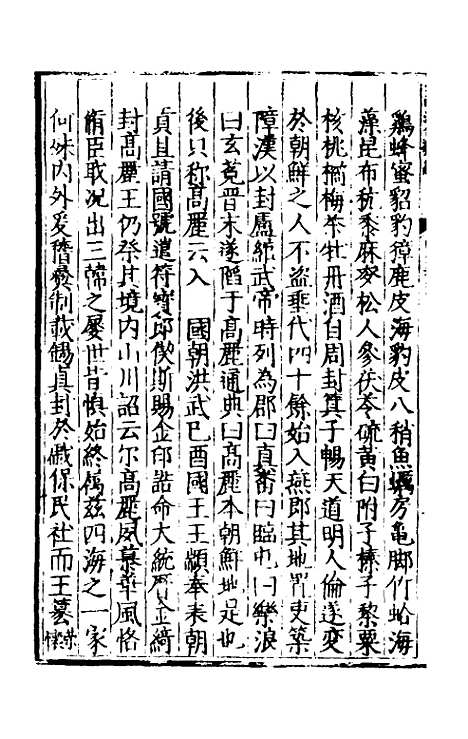 鷄蜂蜜貂豹獐鹿皮海豹皮八稍魚蠣房亀脚竹蛤海
藻昆布秔黍麻麥松人參茯苓硫黃白附子榛子黎粟
核桃橘梅茶牡丹酒白周封箕子暢天道明人倫遂变
於朝鮮之人不盜垂代四十餘始入燕郎其地置吏築
障漢以封盧綰武帝時列為郡曰真番曰臨屯曰樂浪
曰玄菟晋末遂䧟于高麗通典曰高麗本朝鮮地是也
後只称髙麗云入　國朝洪武巳酉國王王顓奉表朝
貢且請國號遣符寳郎偰斯賜金印誥命大統曆金綺
封髙麗王仍祭其境内山川詔云尔高麗夙慕華風恪
脩臣職况出三韓之屡世昔慎始終属兹四海之一家
何殊内外爰稽發制載錫真封於戲保民社而王慕